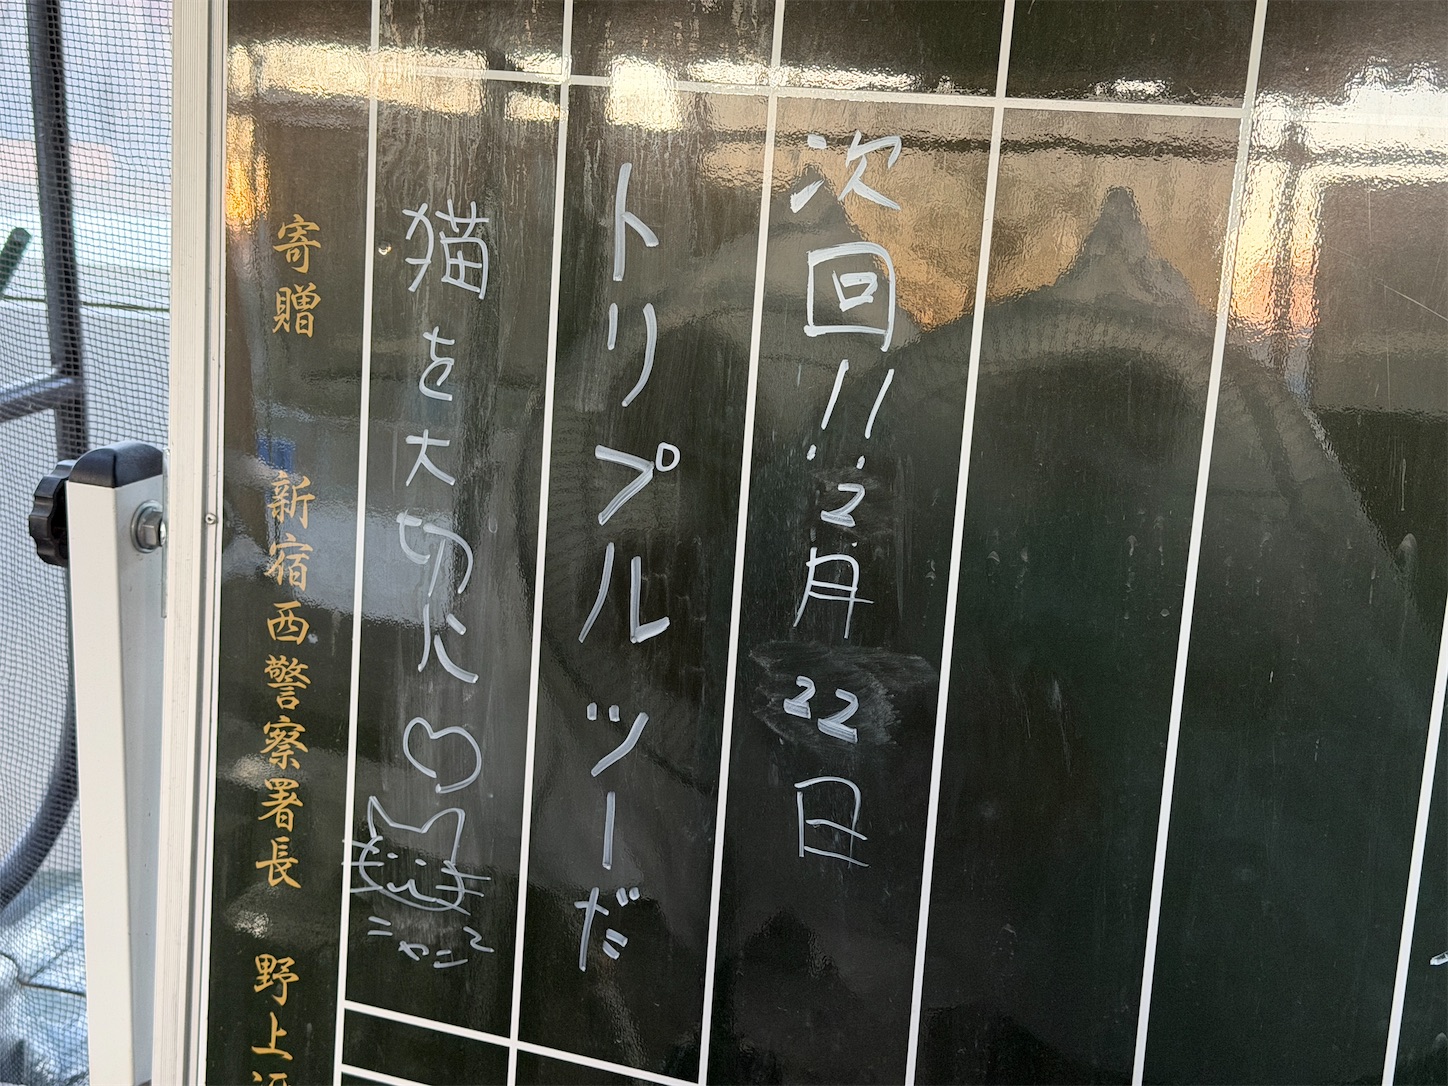 次回!!2月22日
トリプルツーだ
猫を大切に♡
ニャンコ
寄贈 新宿西警察署長 野上